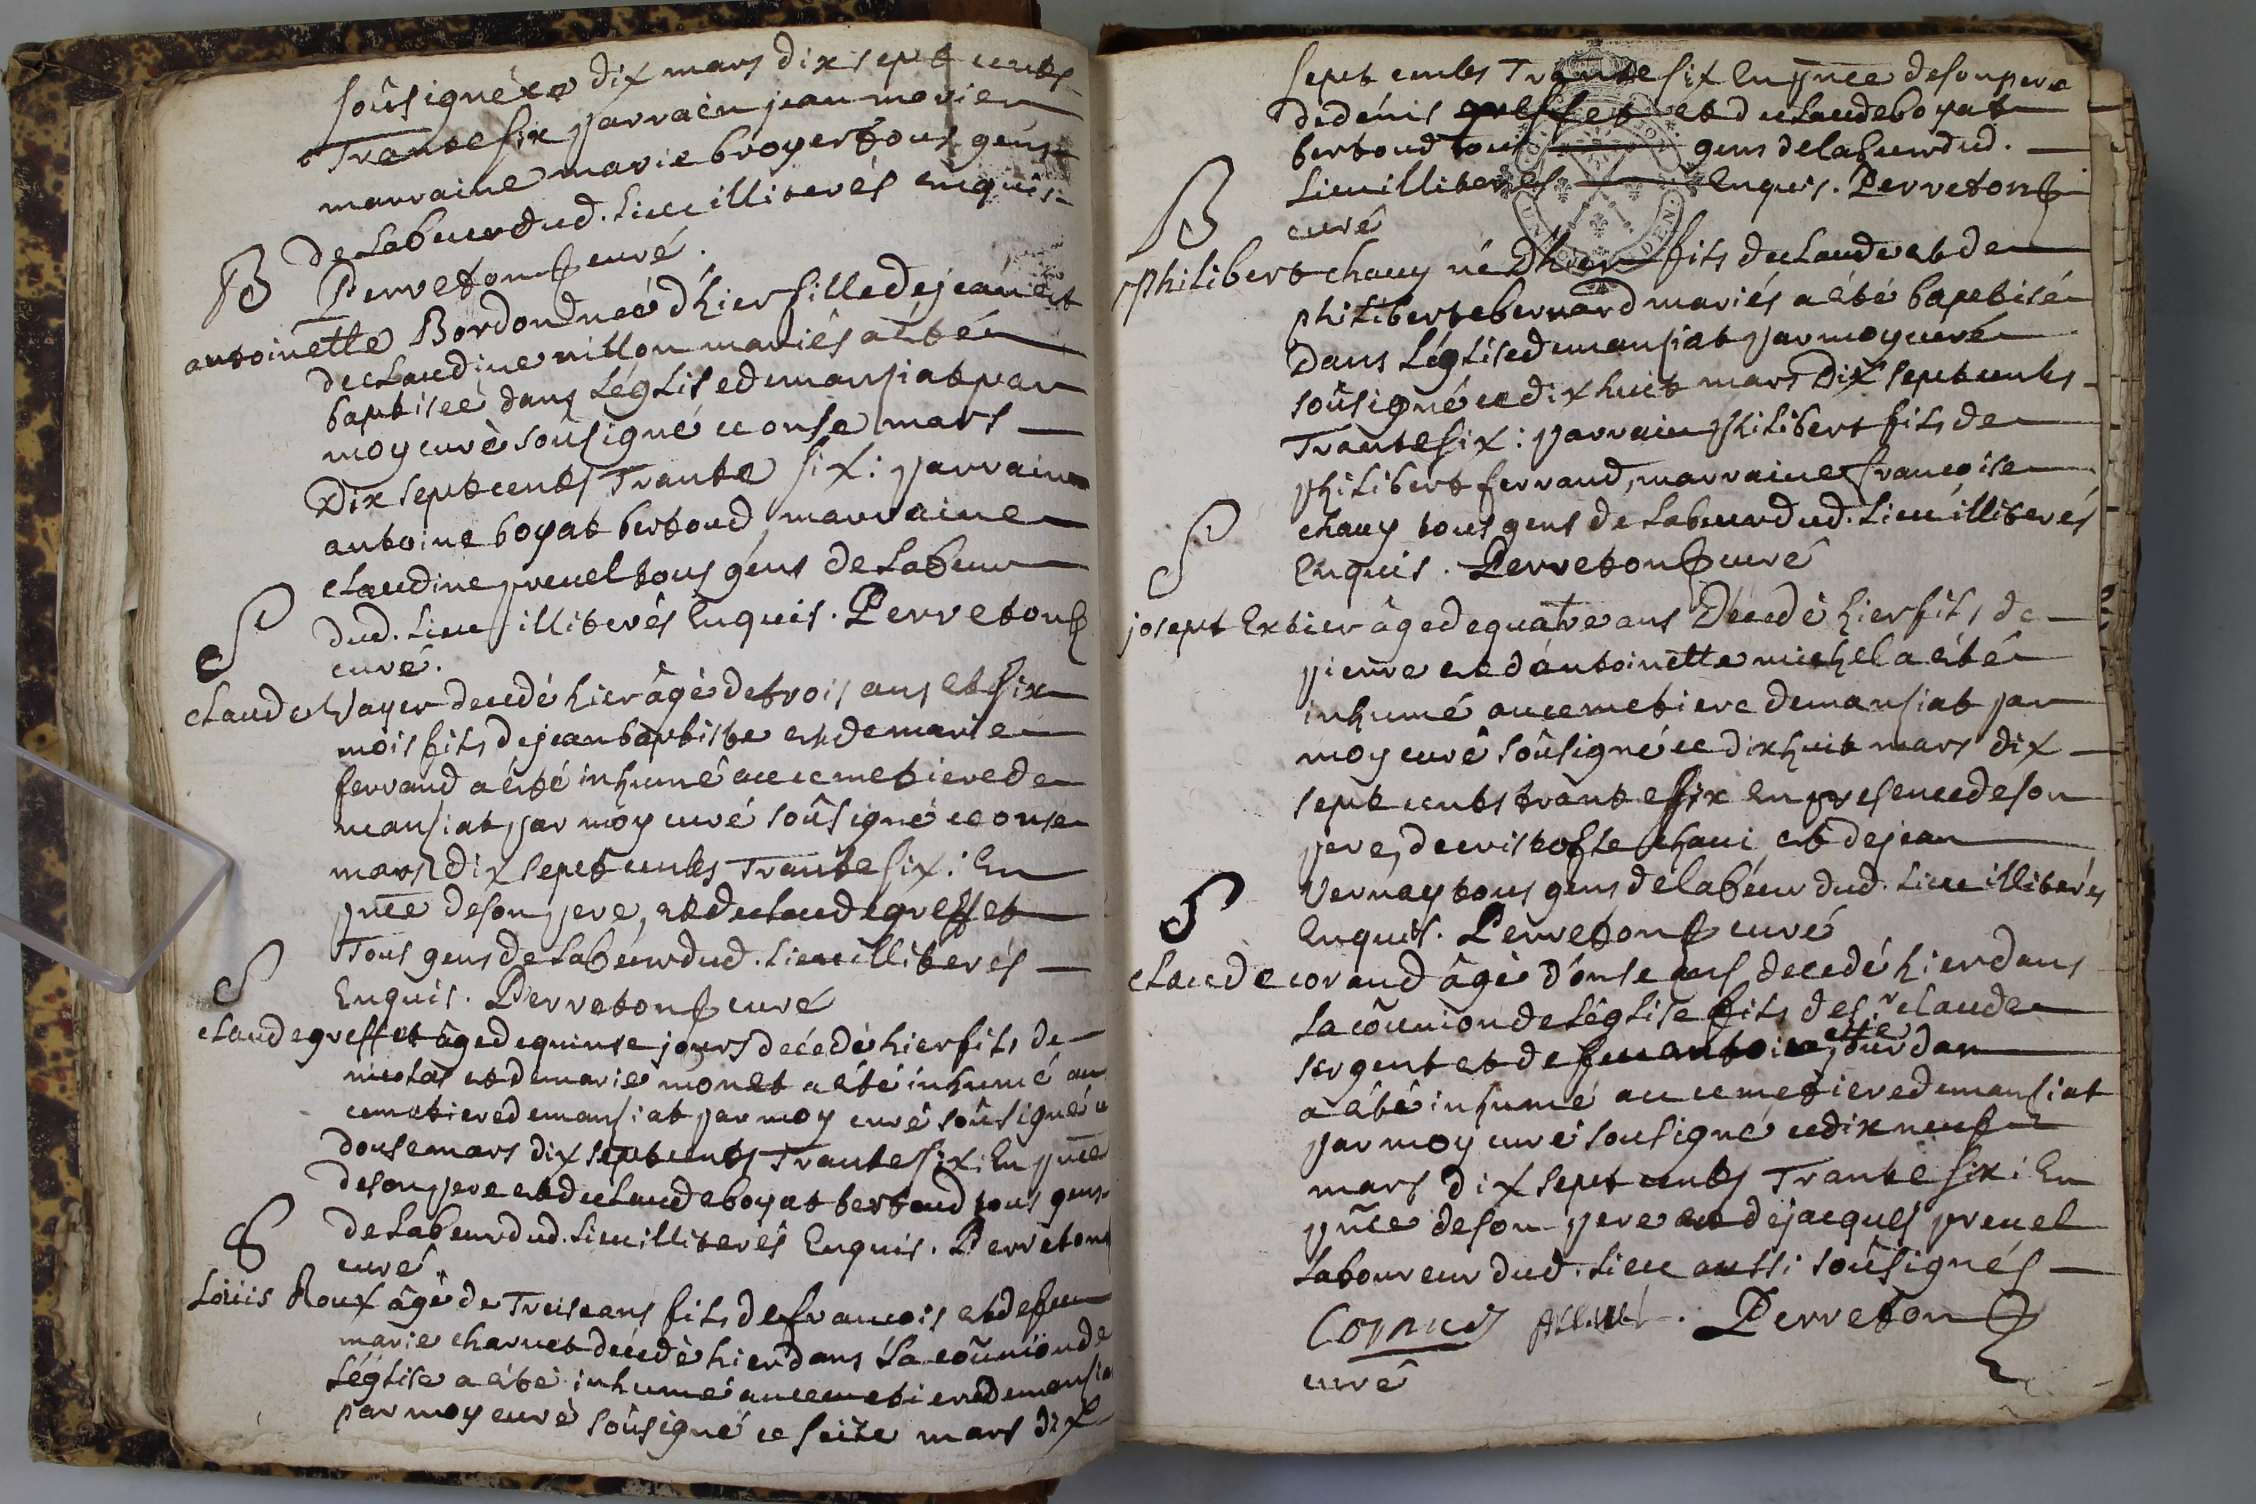 soûsigné ce dix mars dix sept cents
Trante six parrain jean morier
marraine marie broyer tous gens
de Labeur dud. Lieu illiterés enquis.
Perreton curé.
B
antoinette Bordond neé d'hier fille de jean et
de claudine nillon mariés a été
baptiseé dans L'église de mansiat par
moy curé soûsigné ce onse mars
Dix sept cents Trante six: parrain
antoine boyat bertoud marraine
claudine preuel tous gens de Labeur
dud. Lieu illiterés Enquis. Perreton
curé.
S
claude Vayer decedé hier âgé de trois ans et six
mois fils de jean baptiste et de marie
ferrand a été inhumé au cemetiere de
mansiat par moy curé soûsigné ce onse
mars dix sept cents Trante six: En
pnce de son pere, et de claude greffet
Tous gens de Labeur dud. Lieu illiterés
Enquis. Perreton curé
S
claude greffet âgé de quinse jours décedé hier fils de
nicolas et de marie monet a été inhumé au
cemetiere de mansiat par moy curé soûsigné ce
douse mars dix sept cents Trante six: En pnce
de son pere et de claude boyat bertoud tous gens
de Labeur dud. Lieu illiterés Enquis. Perreton
curé.
S
Loüis Roux âgé de Treise ans fils de francois et de feu
marie charvet décedé hier dans La coûnion de
L'église a été inhumé au cemetiere de mansia
par moy curé soûsigné ce seize mars dix
sept cents Trante six En pnce de son pere
de dénis greffet et de claude boyat
bertoud Tous gens de labeur dud.
Lieu illiterés Enquis. Perreton
curé
B
philibert chauy né d'hier fils de claude et de
philiberte bernard mariés a été baptisé
Dans L'église de mansiat par moy curé
soûsigné ce dix huit mars Dix sept cents
Trante six: parrain philibert fils de
philibert ferrand, marraine francoise
chauy tous gens de Labeur dud. Lieu illiterés
Enquis. Perreton curé
S
josept Extier âgé de quatre ans Décedé hier fils de
pierre et d'antoinette michel a été
inhumé au cemetiere de mansiat par
moy curé soûsigné ce dix huit mars dix
sept cents trante six En presence de son
pere, de cristofle chaui et de jean
Vernay tous gens de labeur dud. Lieu illiterés
Enquis. Perreton curé
S
claude corand âgé d'onse ans decedé hier dans
La coûnion de L'église fils de sr claude
sergent et de feu antoinette jourdan
a été inhumé au cemetiere de mansiat
par moy curé sousigné ce dix neuf
mars dix sept cents Trante six: En
pnce de son pere et de jacques preuel
Laboureur dud. Lieu aussi soûsignés
Perreton
curé